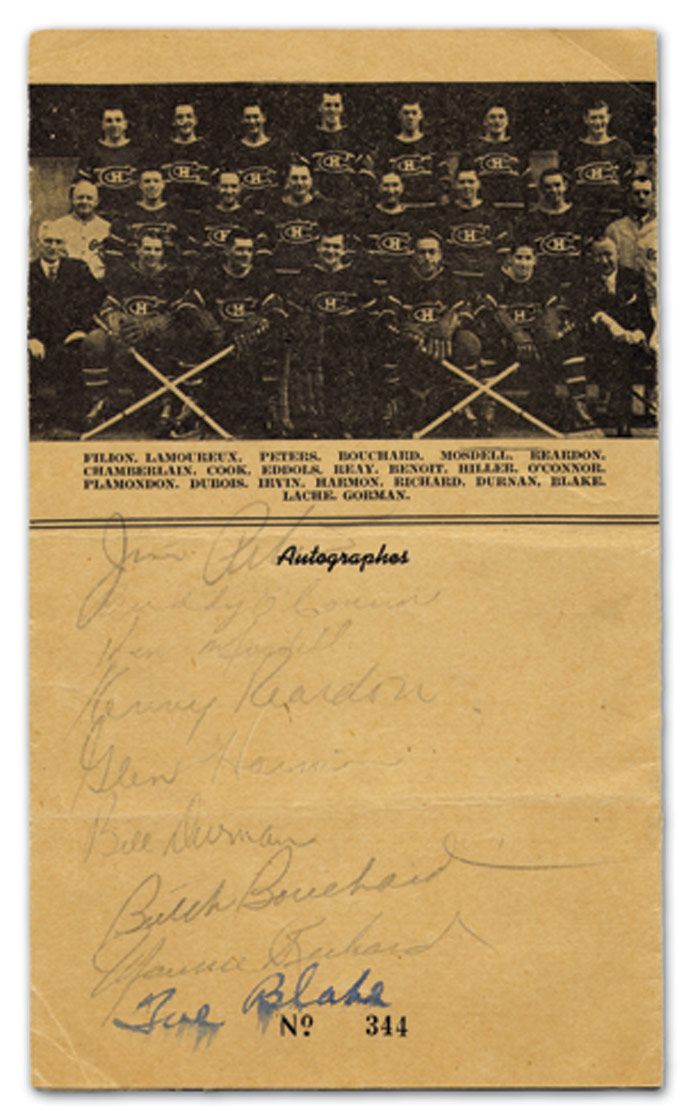 FILION. LAMOUREUX. PETERS. BOUCHARD. MOSDELL. REARDON.
CHAMBERLAIN. COOK. EDDOLS. REAY. BENOIT. HILLER. O'CONNOR.
PLAMONDON. DUBOIS. IRVIN. HARMON. RICHARD. DURNAN. BLAKE.
LACHE. GORMAN.
Autographes
Jim Peters
Buddy O'Connor
Ken Mosdell
Kenny Reardon
Glen Harmon
Bill Durnan
Butch Bouchard
Maurice Richard
Toe Blake
Nº 344